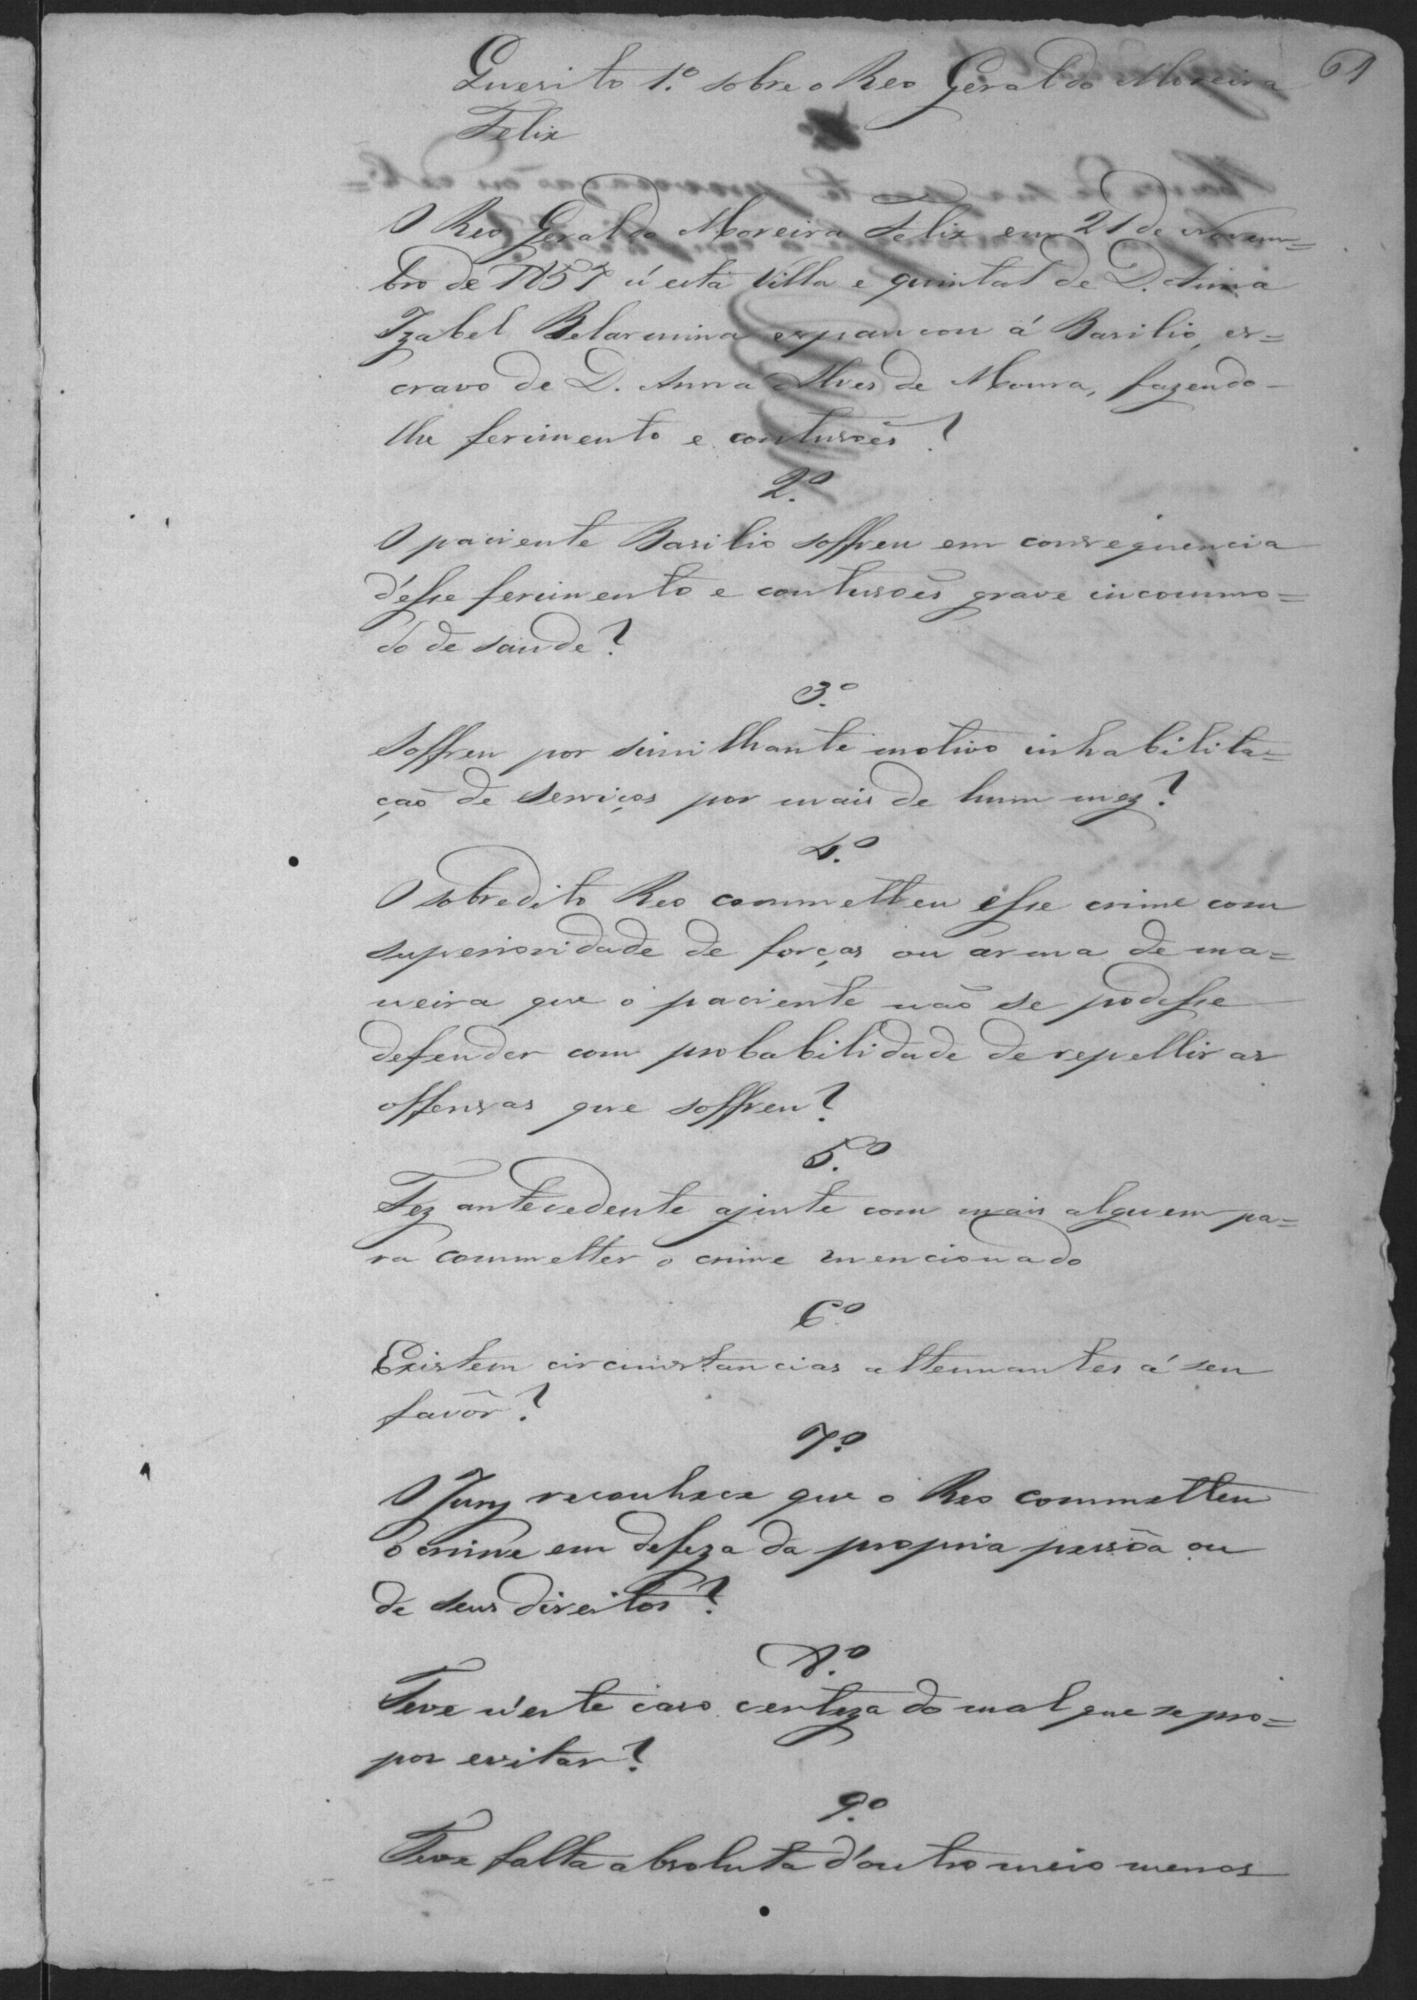 61
Quesito 1.º sobre o Reo Geraldo Moreira
Felix
O Reo Geraldo Moreira Felix em 21 de Novem=
bro de 1857 n'esta Villa e quintal de D. Anna
Izabel Belarmina espancou á Basilio, es=
cravo de D. Anna Alves de Moura, fazendo-
lhe ferimento e contusões?
2.º
O paciente Basilio soffreu em consequencia
d'esse ferimento e contusões grave incommo=
do de saude?
3.º
Soffreu por similhante motivo inhabilita=
ção de serviços por mais de hum mez?
4.º
O sobredito Reo commetteu esse crime com
superioridade de forças ou arma de ma=
neira que o paciente não se podesse
defender com probabilidade de repellir as
offensas que soffreu?
5.º
Fez antecedente ajuste com mais alguem pa=
ra commetter o crime mencionado
6.º
Existem circumstancias attenuantes á seu
favôr?
7.º
O Jury reconhece que o Reo commetteu
o crime em defeza da propria pessôa ou
de seus direitos?
8.º
Teve n'este caso certeza do mal que se pro=
pos evitar?
9.º
Teve falta absoluta d'outro meio menos